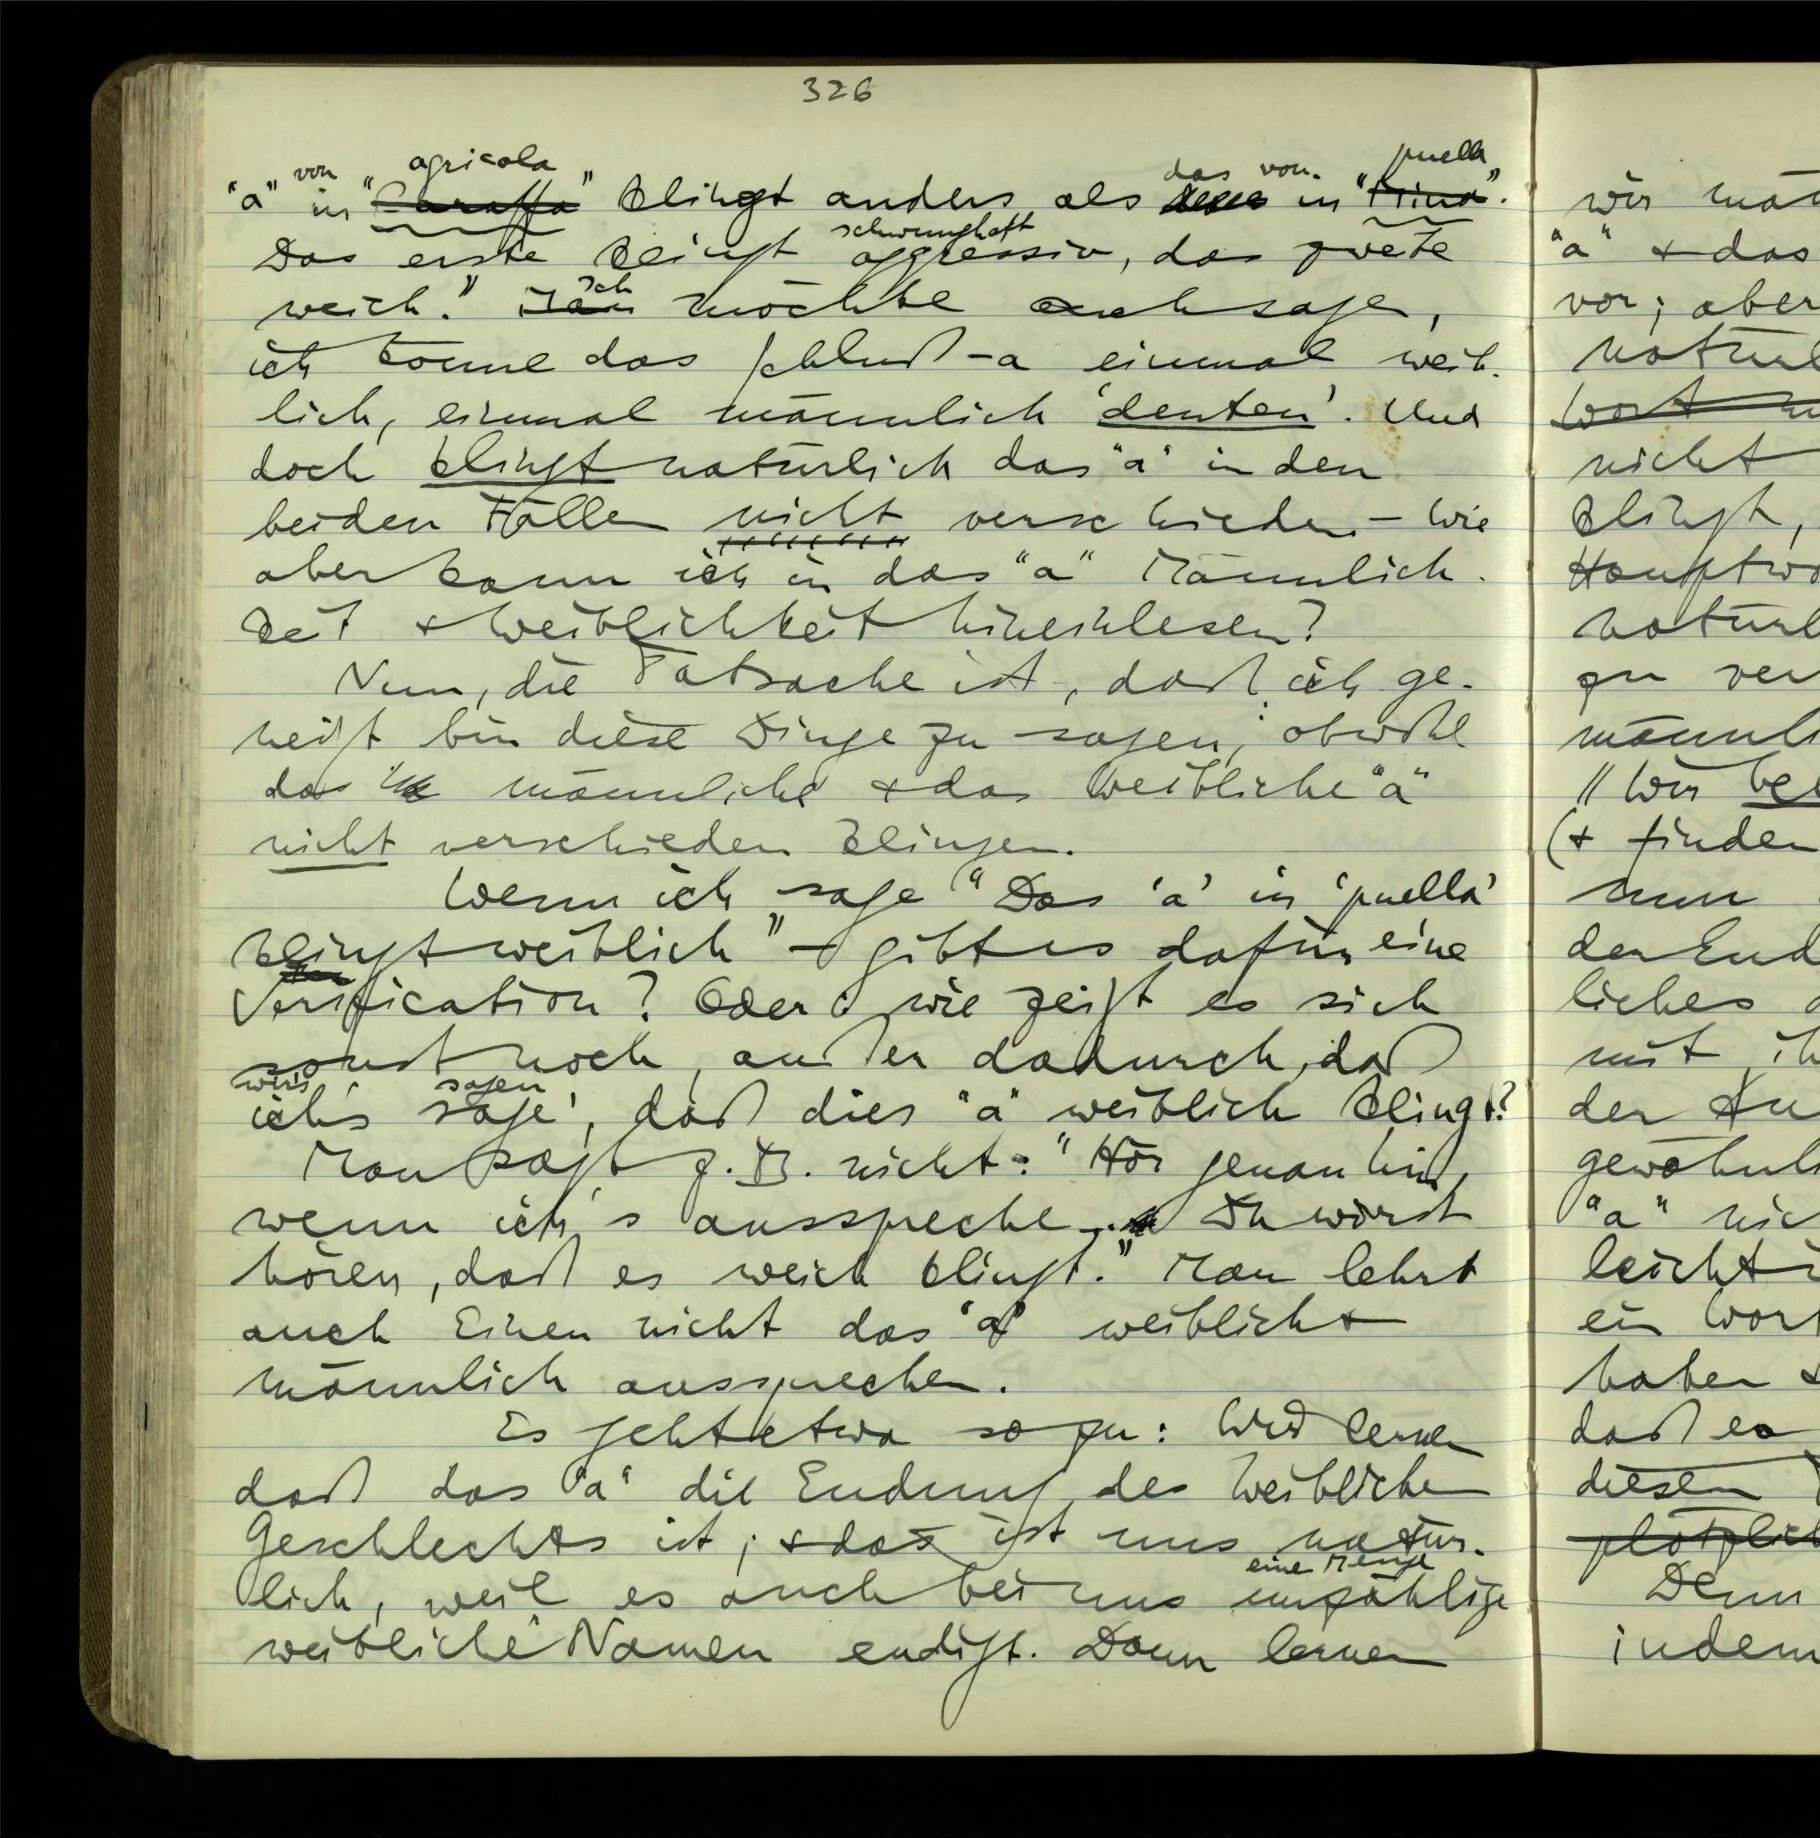 326
von agricola das von puella
"a" in "Caraffa" klingt anders als in "Mina".
schwunghaft
Das erste klingt aggressiv, das zweite
Ich
weich." Man möchte auch sagen,
ich könne das Schluß-a einmal weib-
lich, einmal männlich 'deuten'. Und
doch klingt natürlich das "a" in den
beiden Fällen nicht verschieden. – Wie
aber kann ich in das "a" Männlich-
keit & Weiblichkeit hineinlesen?
Nun, die Tatsache ist, daß ich ge-
neigt bin diese Dinge zu sagen; obwohl
das männliche & das weibliche "a"
nicht verschieden klingen.
Wenn ich sage "Das 'a' in 'puella'
klingt weiblich" – gibt es dafür eine
Verification? Oder: wie zeigt es sich
sonst noch, außer dadurch, daß
wir's sagen
ich's sage, daß dies "a" weiblich klingt?
Man sagt z.B. nicht: "Hör genau hin,
wenn ich's ausspreche. Du wirst
hören, daß es weich klingt." Man lehrt
auch Einen nicht das 'a' weiblich &
männlich aussprechen.
Es geht etwa so zu: Wir lernen
daß das "a" die Endung des weiblichen
Geschlechts ist; & das ist uns natür-
eine Menge
lich, weil es auch bei uns unzählige
weibliche Namen endigt. Dann lernen
wir
"a" & das
vor; aber
nicht
klingt,
zu
"Wir
(& finden
nun
der
liches
mit
der
"a"
leicht
ein Wort
haben &
daß es
diesen
plötzlich
Denn
indem